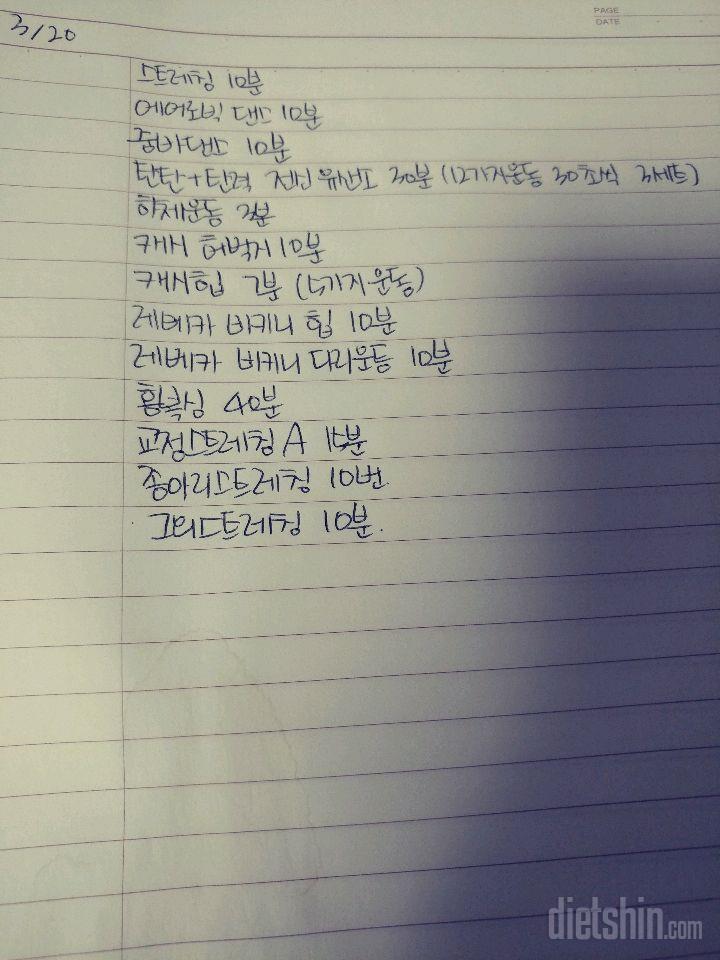 PAGE
DATE
3/20
스트레칭 10분
에어로빅 댄스 10분
줌바댄스 10분
탄탄+탄력 전신 유산소 30분 (12가지운동 30초씩 3세트)
하체운동 3분
캐시 허벅지 10분
캐시힙 7분 (5가지운동)
레베카 비키니 힙 10분
레베카 비키니 다리운동 10분
40분
교정스트레칭 A 15분
종아리스트레칭 10번
그외스트레칭 10분.
dietshin.com